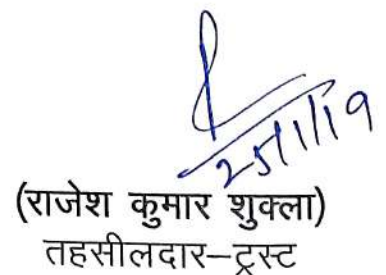 25/1/19
(राजेश कुमार शुक्ला)
तहसीलदार–ट्रस्ट